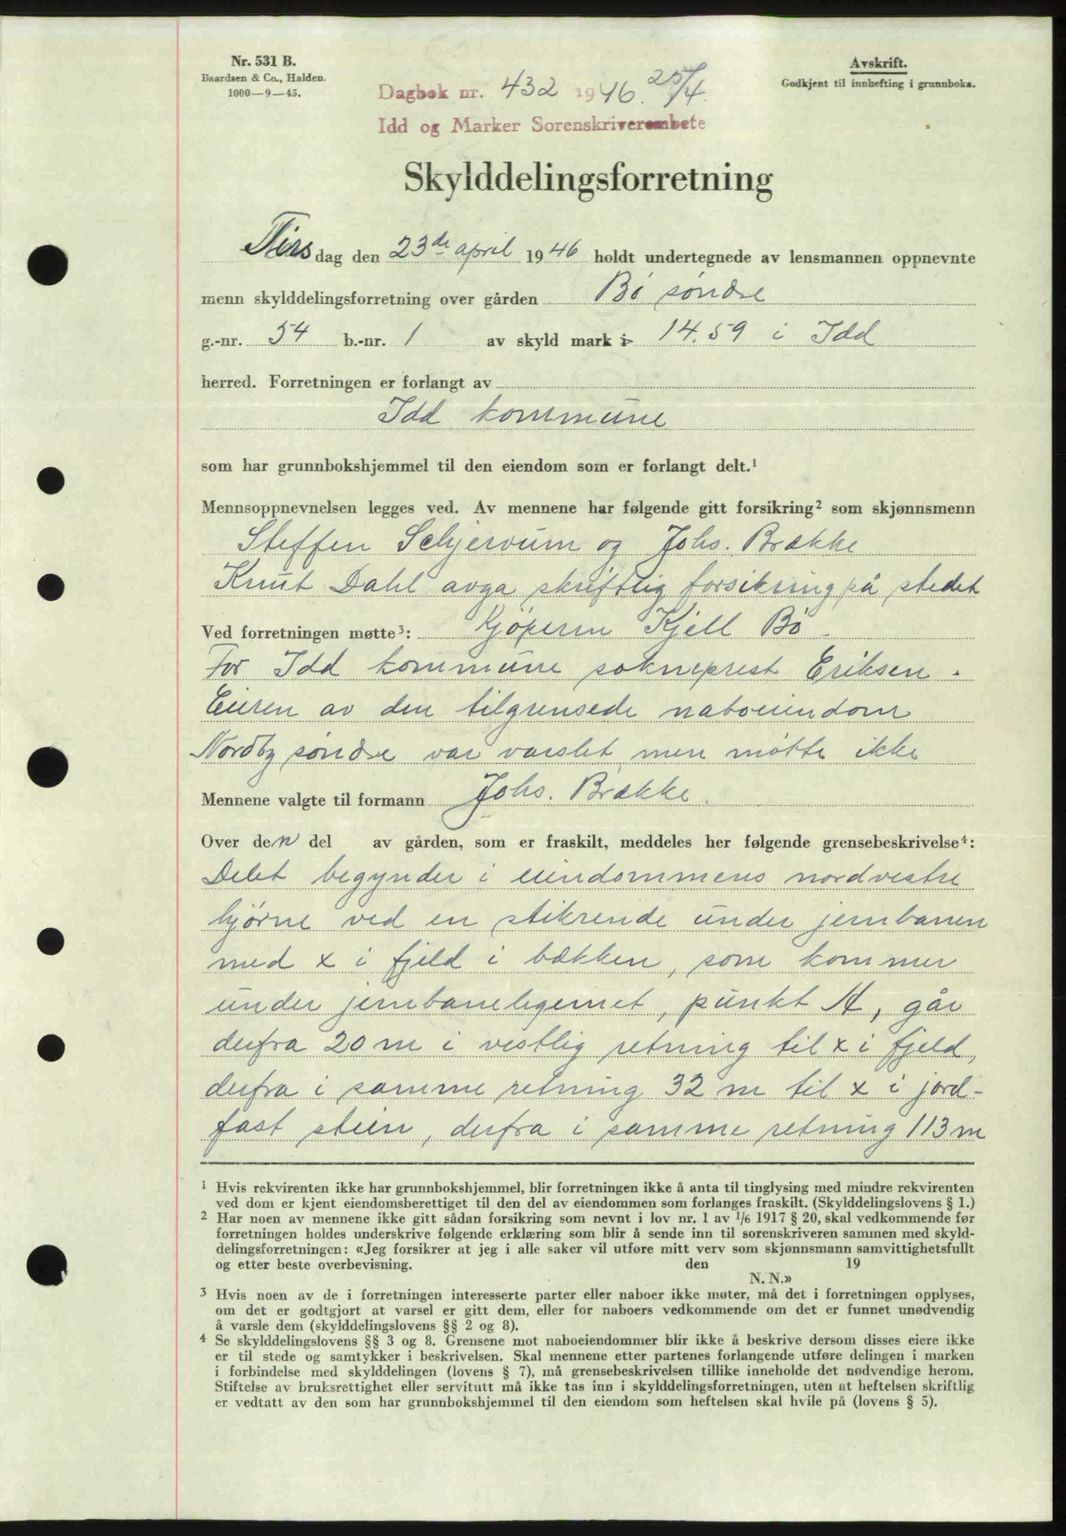 Nr. 531 B.
Baardsen & Co., Halden.
1000—9—45.
Avskrift.
Godkjent til innhefting i grunnboka.
Dagbok nr. 432 1946. 25/4.
Idd og Marker Sorenskriverembete
Skylddelingsforretning
Tirsdag den 23de april 1946 holdt undertegnede av lensmannen oppnevnte
menn skylddelingsforretning over gården Bø søndre
g.-nr. 54 b.-nr. 1 av skyld mark 14.59 i Idd
herred. Forretningen er forlangt av
Idd kommune
som har grunnbokshjemmel til den eiendom som er forlangt delt.¹
Mennsoppnevnelsen legges ved. Av mennene har følgende gitt forsikring² som skjønnsmenn
Steffen Schjervum og Johs. Brække
Knut Dahl avga skriftlig forsikring på stedet
Ved forretningen møtte³: Kjøperen Kjell Bø.
For Idd kommune sokneprest Eriksen.
Eieren av den tilgrensede naboeiendom
Nordby søndre var varslet, men møtte ikke
Mennene valgte til formann Johs. Brække.
Over den del av gården, som er fraskilt, meddeles her følgende grensebeskrivelse⁴:
Delet begynder i eiendommens nordvestre
hjørne ved en stikrende under jernbanen
med x i fjeld i bækken, som kommer
under jernbanelegemet, punkt A, går
derfra 20 m i vestlig retning til x i fjeld,
derfra i samme retning 32 m til x i jord-
fast stein, derfra i samme retning 113 m
¹ Hvis rekvirenten ikke har grunnbokshjemmel, blir forretningen ikke å anta til tinglysing med mindre rekvirenten
ved dom er kjent eiendomsberettiget til den del av eiendommen som forlanges fraskilt. (Skylddelingslovens § 1.)
² Har noen av mennene ikke gitt sådan forsikring som nevnt i lov nr. 1 av 1/6 1917 § 20, skal vedkommende før
forretningen holdes underskrive følgende erklæring som blir å sende inn til sorenskriveren sammen med skyld-
delingsforretningen: «Jeg forsikrer at jeg i alle saker vil utføre mitt verv som skjønnsmann samvittighetsfullt
og etter beste overbevisning. den 19
N. N.»
³ Hvis noen av de i forretningen interesserte parter eller naboer ikke møter, må det i forretningen opplyses,
om det er godtgjort at varsel er gitt dem, eller for naboers vedkommende om det er funnet unødvendig
å varsle dem (skylddelingslovens §§ 2 og 8).
⁴ Se skylddelingslovens §§ 3 og 8. Grensene mot naboeiendommer blir ikke å beskrive dersom disses eiere ikke
er til stede og samtykker i beskrivelsen. Skal mennene etter partenes forlangende utføre delingen i marken
i forbindelse med skylddelingen (lovens § 7), må grensebeskrivelsen tillike inneholde det nødvendige herom.
Stiftelse av bruksrettighet eller servitutt må ikke tas inn i skylddelingsforretningen, uten at heftelsen skriftlig
er vedtatt av den som har grunnbokshjemmel til den eiendom som heftelsen skal hvile på (lovens § 5).